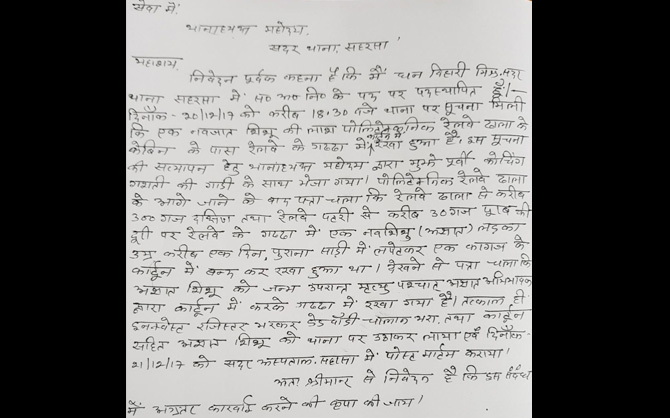 सेवा में,
थानाध्यक्ष महोदय,
सदर थाना, सहरसा।
महाशय,
निवेदन पूर्वक कहना है कि मैं घन बिहारी मिश्र, सदर
थाना सहरसा में स० अ० नि० के पद पर पदस्थापित हूँ।-
दिनाँक- 20/12/17 को करीब 18:30 बजे थाना पर सूचना मिली
कि एक नवजात शिशु की लाश पोलिटेकनिक रेलवे ढाला के
केबिन के पास रेलवे के गढ्ढा में कार्टून में रखा हुआ है। इस सूचना
की सत्यापन हेतु थानाध्यक्ष महोदय द्वारा मुझे पूर्वी कोचिंग
गश्ती की गाडी के साथ भेजा गया। पोलिटेकनिक रेलवे ढाला
के आगे जाने के बाद पता चला कि रेलवे ढाला से करीब
300 गज दक्षिण तथा रेलवे पटरी से करीब 30 गज पूरब की
दूरी पर रेलवे के गढ्ढा में एक नवशिशु (अज्ञात) लड़का
उम्र करीब एक दिन, पुराना साडी में लपेटकर एक कागज के
कार्टून में बन्द कर रखा हुआ था। देखने से पता चला कि
अज्ञात शिशु को जन्म उपरान्त मृत्यु पश्चात अज्ञात अभिभावक
द्वारा कार्टून में करके गढ्ढा में रखा गया है। तत्काल ही
इनक्वेस्ट रजिस्टर भरकर डेड वॉडी-चालान भरा, तथा कार्टून
सहित अज्ञात शिशु को थाना पर उठाकर लाया एवं दिनाँक-
21/12/17 को सदर अस्पताल, सहरसा में पोस्ट मार्टम कराया।
अतः श्रीमान् से निवेदन है कि इस संबंध
में अग्रतर कारवाई करने की कृपा की जाय।